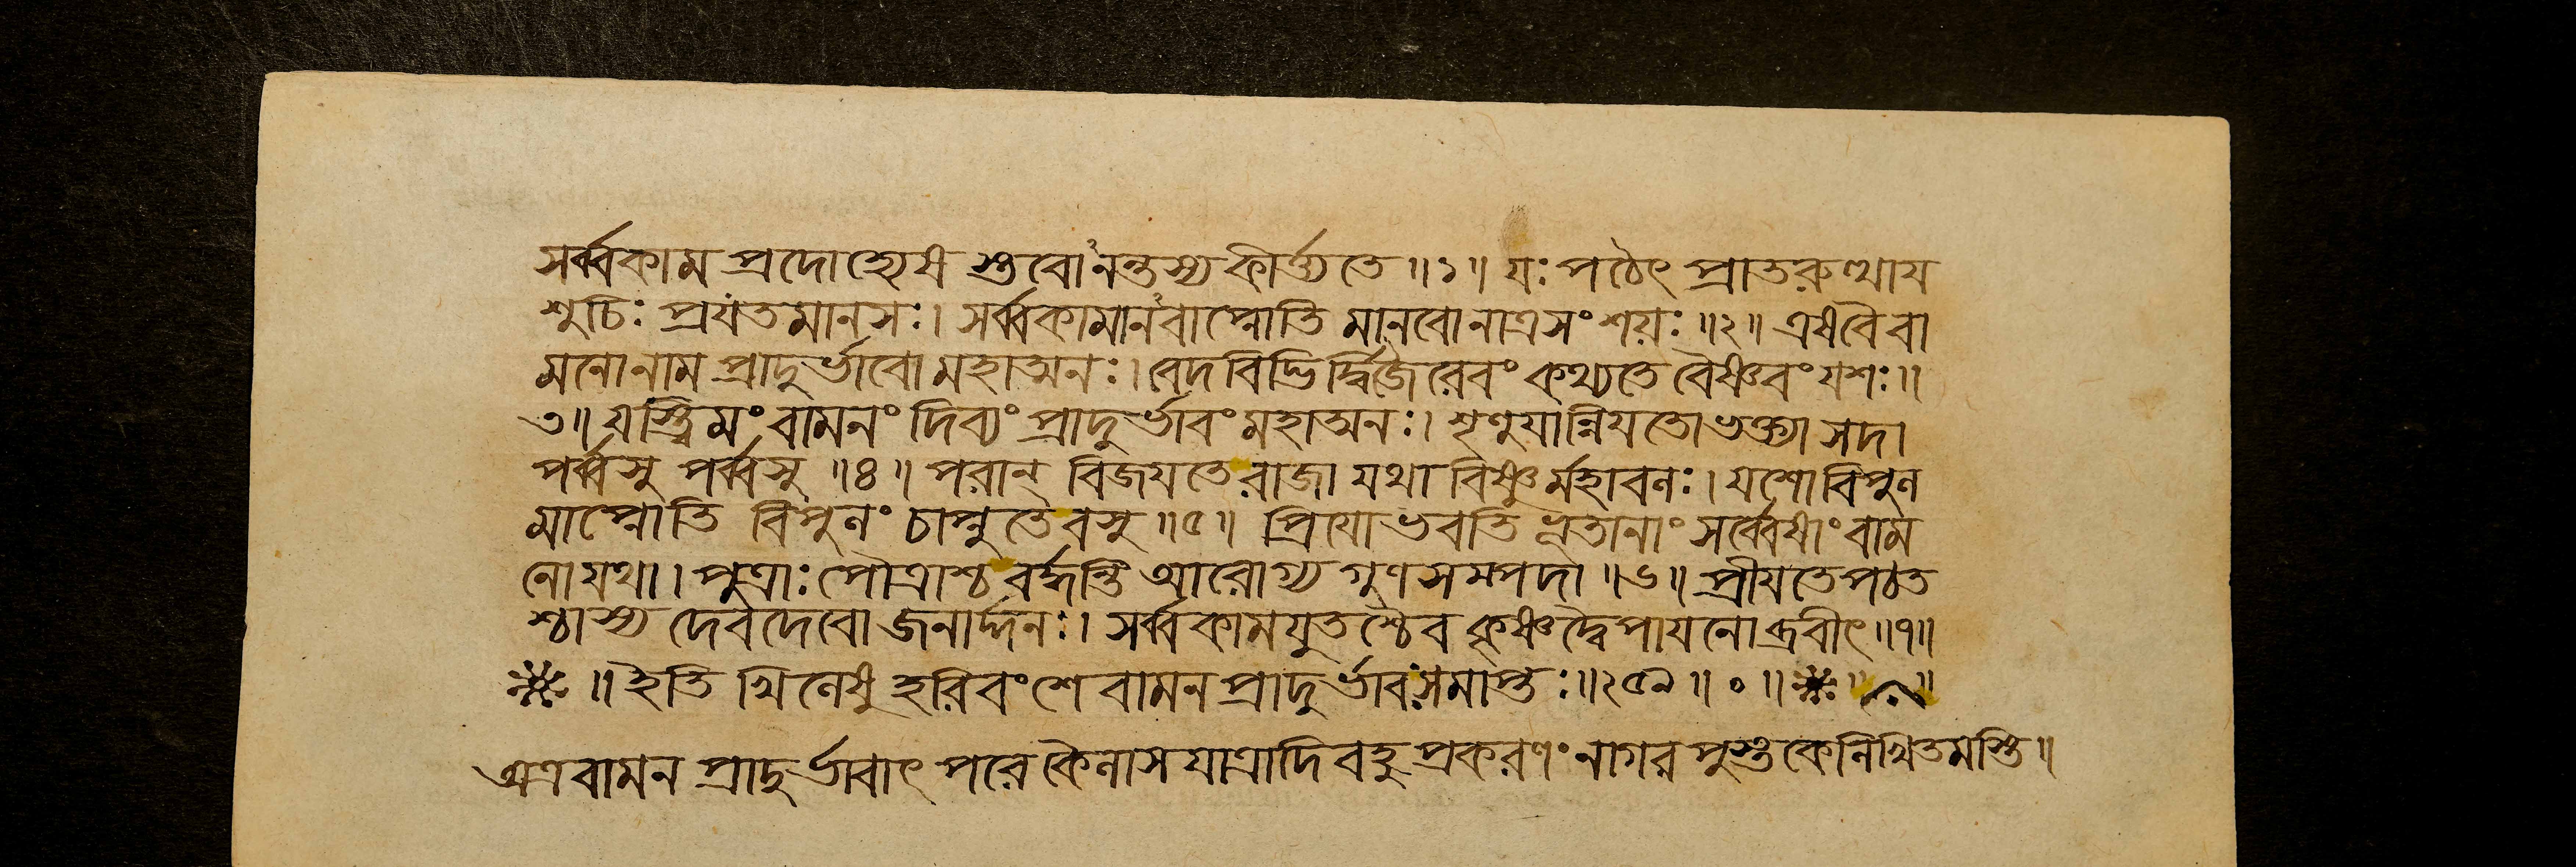 সর্ব্বকাম প্রদোহ্যেষ শুবোঽনন্তস্য কীর্ত্যতে ॥১॥ যঃ পঠেৎ প্রাতরুত্থায
শুচিঃ প্রযতমানসঃ। সর্ব্বকামানবাপ্নোতি মানবোনাত্রসংশয়ঃ ॥২॥ এষবৈ বা
মনোনাম প্রাদুর্ভাবো মহাত্মনঃ। বেদবিদ্ভির্দ্বিজৈরেবং কথ্যতে বৈষ্ণবং যশঃ॥
৩॥ যস্ত্বিমং বামনং দিব্যং প্রাদুর্ভাবং মহাত্মনঃ। শৃণুযান্নিযতোভক্ত্যা সদা
পর্ব্বসু পর্ব্বসু ॥৪॥ পরান্ বিজযতে রাজা যথা বিষ্ণুর্মহাবলঃ। যশোবিপুল
মাপ্নোতি বিপুলং চাপ্নুতে বসু ॥৫॥ প্রিযোভবতি ভূতানাং সর্ব্বেষাং বাম
নোযথা। পুত্রাঃ পৌত্রাশ্চ বর্দ্ধন্তি আরোগ্য গুণসম্পদা ॥৬॥ প্রীযতে পঠত
শ্চাস্য দেবদেবো জনার্দ্দনঃ। সর্ব্বকামযুতশ্চৈব কৃষ্ণদ্বৈপাযনোব্রবীৎ॥৭॥
॥ ইতি খিলেষু হরিবংশে বামনপ্রাদুর্ভাবঃসমাপ্তঃ॥২৫৯॥ ০ ॥
অত্রবামন প্রাদুর্ভাবাৎ পরে কৈলাসযাত্রাদি বহুপ্রকরণং নাগরপুস্তকেলিখিতমস্তি॥